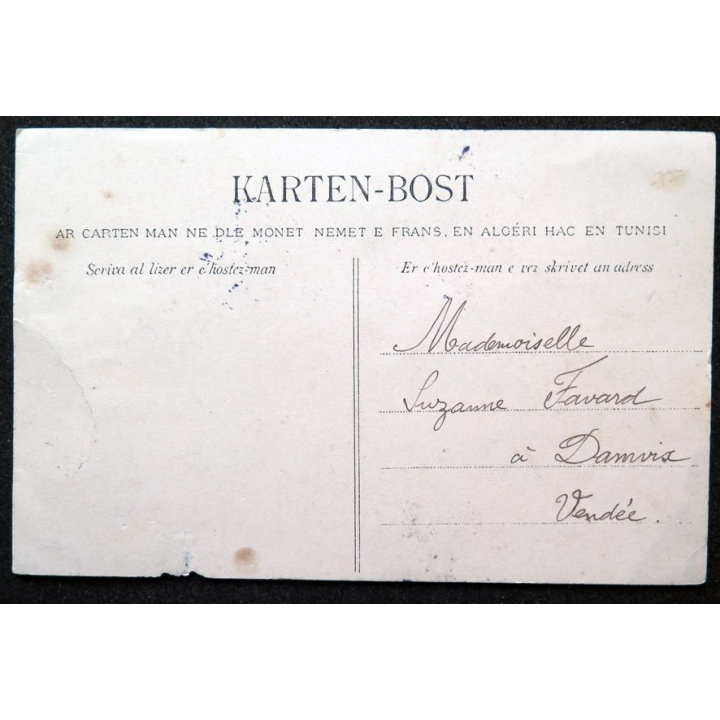 KARTEN-BOST
AR CARTEN MAN NE DLE MONET NEMET E FRANS, EN ALGÉRI HAC EN TUNISI
Scriva al lizer er c'hostez-man
Er c'hostez-man e vez skrivet an adress
Mademoiselle
Suzanne Favard
à Damvix
Vendée.